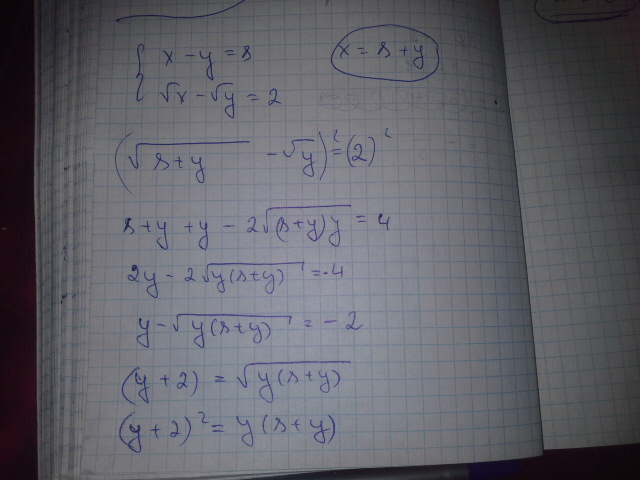 x - y = 8
x = 8 + y
√x - √y = 2
(√(8+y) - √y)² = (2)²
8 + y + y - 2√((8+y)y) = 4
2y - 2√(y(8+y)) = -4
y - √(y(8+y)) = -2
(y + 2) = √(y(8+y))
(y + 2)² = y(8+y)